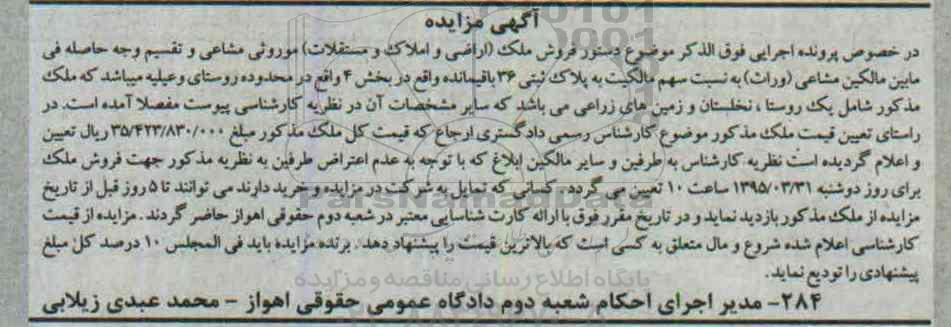 آگهی مزایده
در خصوص پرونده اجرایی فوق الذکر موضوع دستور فروش ملک (اراضی و املاک و مستقلات) موروثی مشاعی و تقسیم وجه حاصله فی
مابین مالکین مشاعی (وراث) به نسبت سهم مالکیت به پلاک ثبتی ۳۶ باقیمانده واقع در بخش ۴ واقع در محدوده روستای وعیلیه میباشد که ملک
مذکور شامل یک روستا ، نخلستان و زمین های زراعی می باشد که سایر مشخصات آن در نظریه کارشناسی پیوست مفصلا آمده است. در
راستای تعیین قیمت ملک مذکور موضوع کارشناس رسمی دادگستری ارجاع که قیمت کل ملک مذکور مبلغ ۳۵/۴۲۳/۸۳۰/۰۰۰ ریال تعیین
و اعلام گردیده است نظریه کارشناس به طرفین و سایر مالکین ابلاغ که با توجه به عدم اعتراض طرفین به نظریه مذکور جهت فروش ملک
برای روز دوشنبه ۱۳۹۵/۰۳/۳۱ ساعت ۱۰ تعیین می گردد. کسانی که تمایل به شرکت در مزایده و خرید دارند می توانند تا ۵ روز قبل از تاریخ
مزایده از ملک مذکور بازدید نماید و در تاریخ مقرر فوق با ارائه کارت شناسایی معتبر در شعبه دوم حقوقی اهواز حاضر گردند. مزایده از قیمت
کارشناسی اعلام شده شروع و مال متعلق به کسی است که بالاترین قیمت را پیشنهاد دهد. برنده مزایده باید فی المجلس ۱۰ درصد کل مبلغ
پیشنهادی را تودیع نماید.
۲۸۴- مدیر اجرای احکام شعبه دوم دادگاه عمومی حقوقی اهواز - محمد عبدی زیلابی
ParsNamadData
پایگاه اطلاع رسانی مناقصه و مزایده